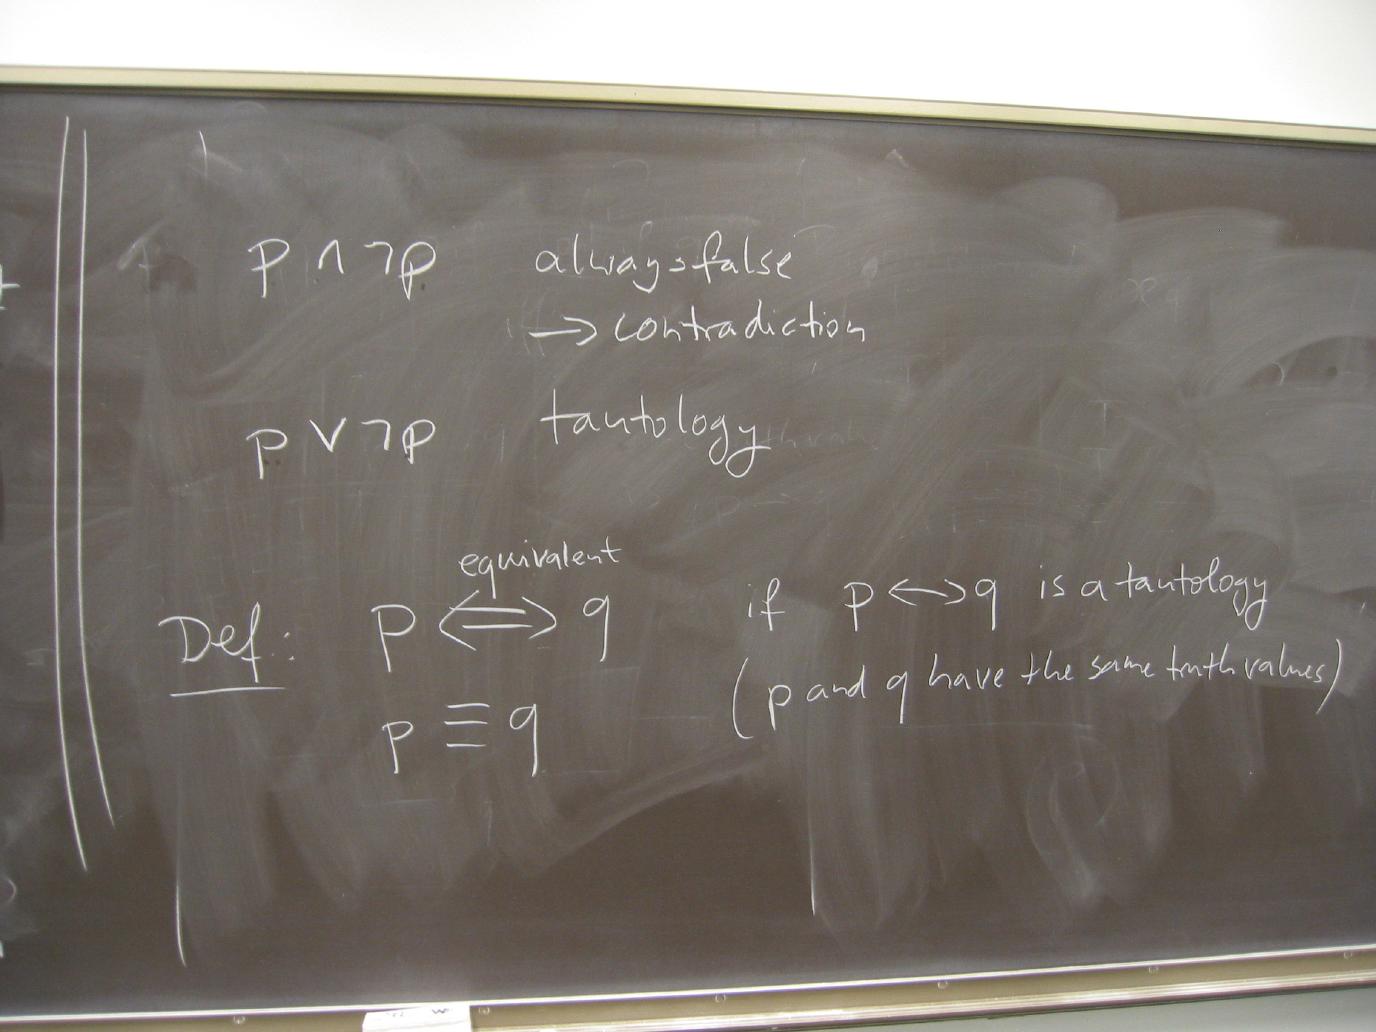 p ∧ ¬p always false
→ contradiction
p ∨ ¬p tautology
equivalent
Def: p ⟺ q if p ↔ q is a tautology
p ≡ q (p and q have the same truth values)